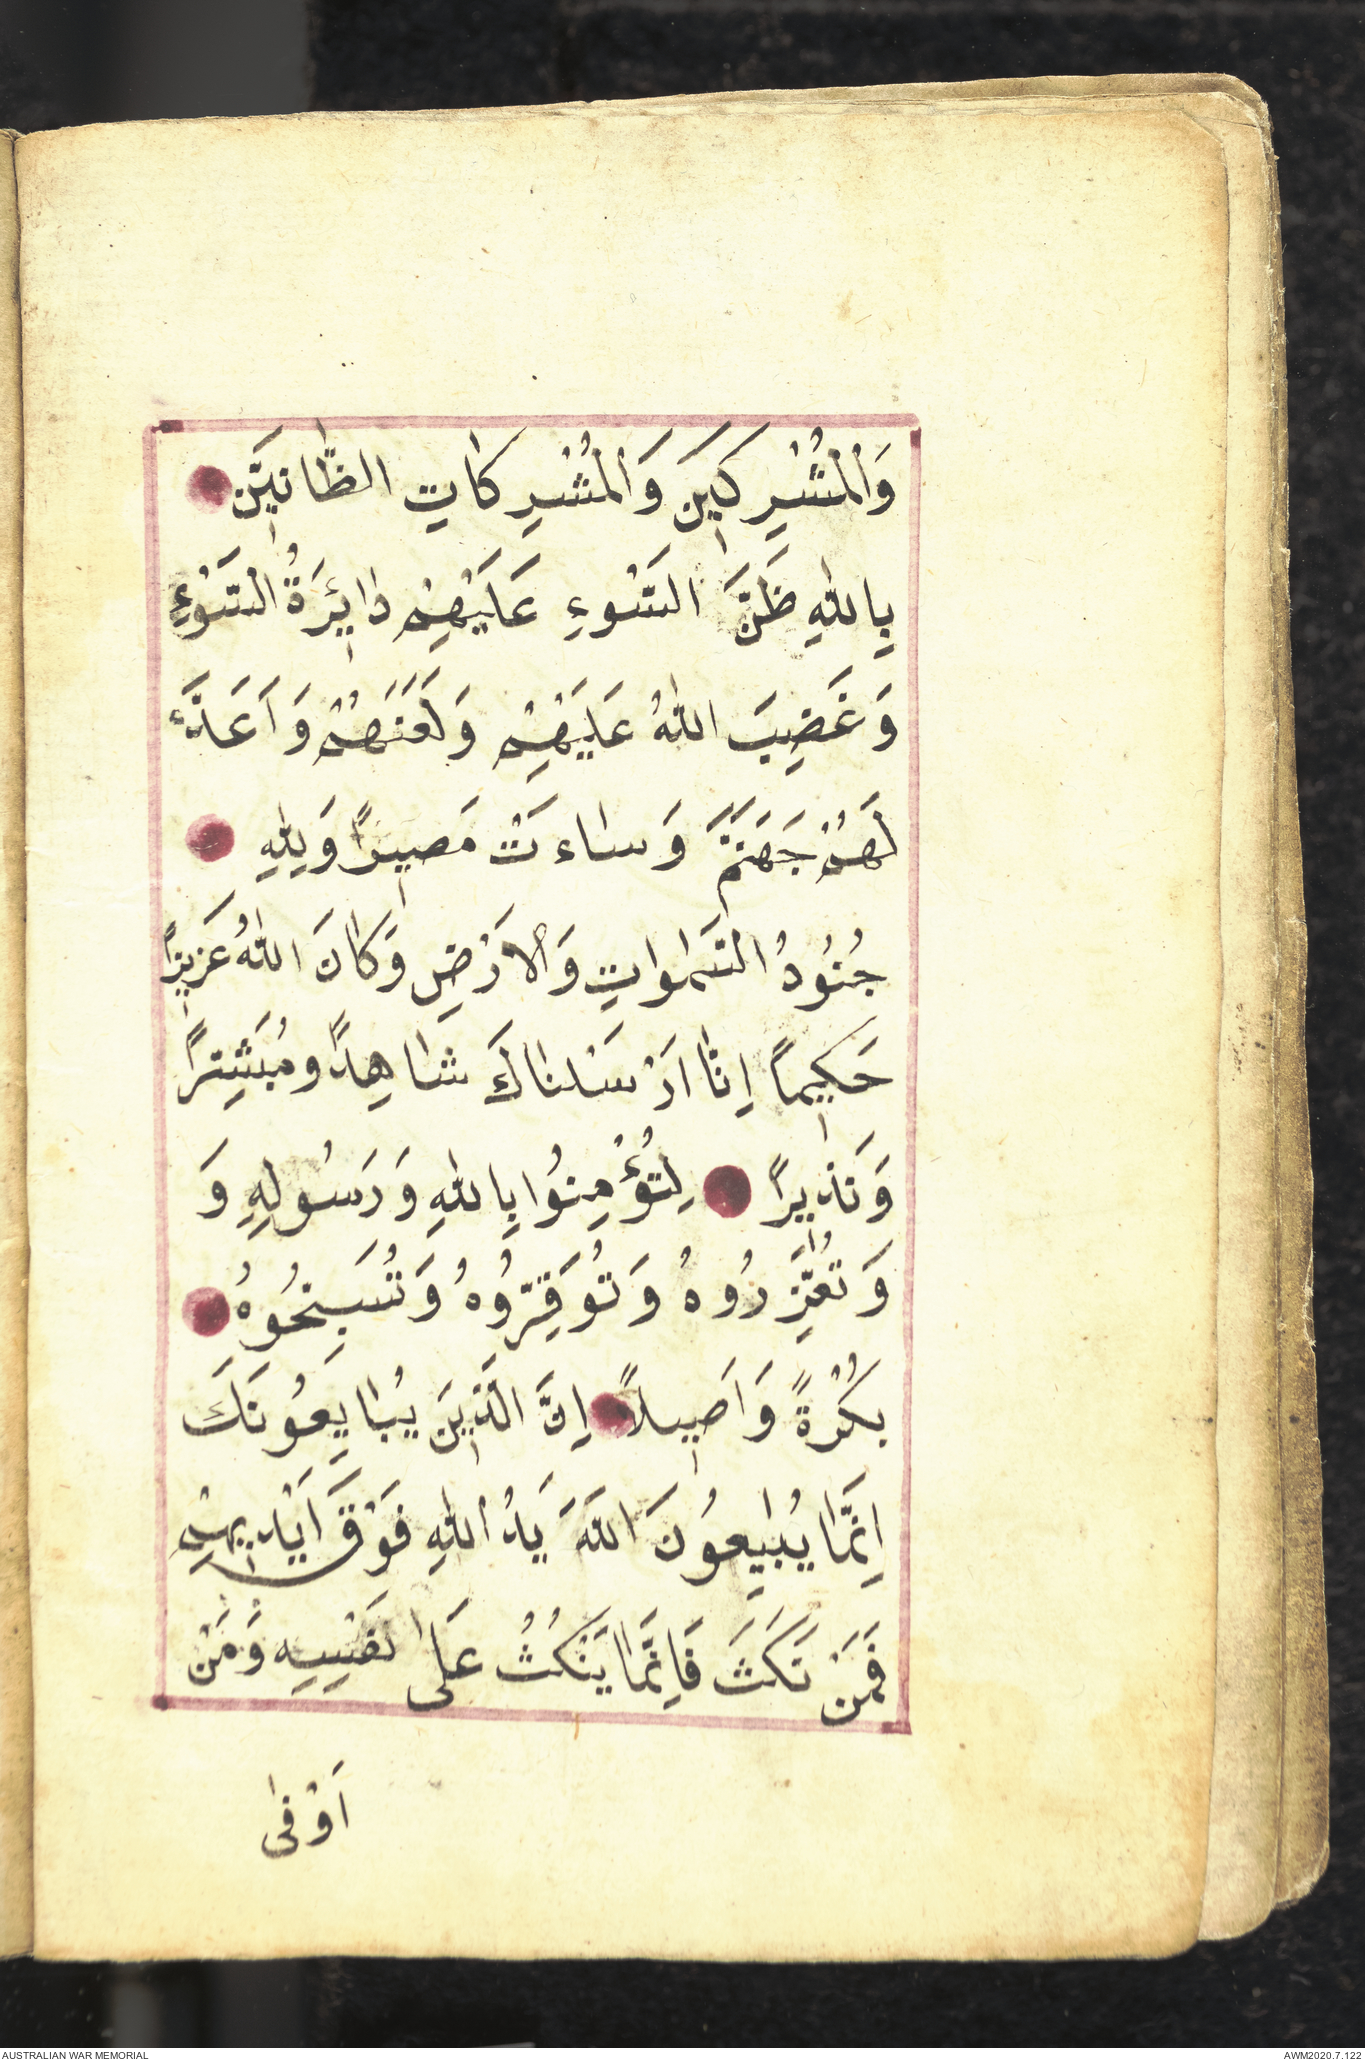 وَالْمُشْرِكٖينَ وَالْمُشْرِكَاتِ الظَّانّٖينَ
بِاللّٰهِ ظَنَّ السَّوءِ عَلَيْهِمْ دَٓائِرَةُ السَّوْءِ
وَغَضِبَ اللّٰهُ عَلَيْهِمْ وَلَعَنَهُمْ وَاَعَدَّ
لَهُمْ جَهَنَّمَ وَسَاءَتْ مَصٖيرًا وَلِلّٰهِ
جُنُودُ السَّمٰوَاتِ وَالْاَرْضِ وَكَانَ اللّٰهُ عَزٖيزًا
حَكٖيمًا اِنَّا اَرْسَلْنَاكَ شَاهِدًا وَمُبَشِّرًا
وَنَذٖيرًا لِتُؤْمِنُوا بِاللّٰهِ وَرَسُولِهِ وَ
وَتُعَزِّرُوهُ وَتُوَقِّرُوهُ وَتُسَبِّحُوهُ
بُكْرَةً وَاَصٖيلًا اِنَّ الَّذٖينَ يُبَايِعُونَكَ
اِنَّمَا يُبَايِعُونَ اللّٰهَ يَدُ اللّٰهِ فَوْقَ اَيْدٖيهِمْ
فَمَنْ نَكَثَ فَاِنَّمَا يَنْكُثُ عَلٰى نَفْسِهِ وَمَنْ
اَوْفٰى
AUSTRALIAN WAR MEMORIAL
AWM2020.7.122